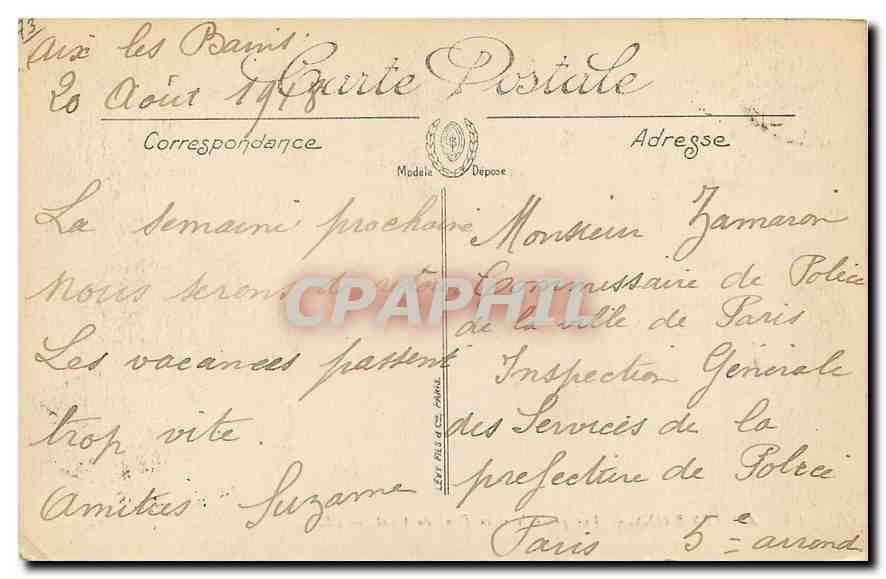 Aix les Bains.
20 Août 1918
Carte Postale
Correspondance
Adresse
Modèle Déposé
La semaine prochaine
nous serons de retour
Les vacances passent
trop vite.
Amitiés Suzanne
Monsieur Zamaron
Commissaire de Police
de la ville de Paris
Inspection Générale
des Services de la
prefecture de Police
Paris 5e arrond
LÉVY FILS & Cie PARIS
CPAPHIL